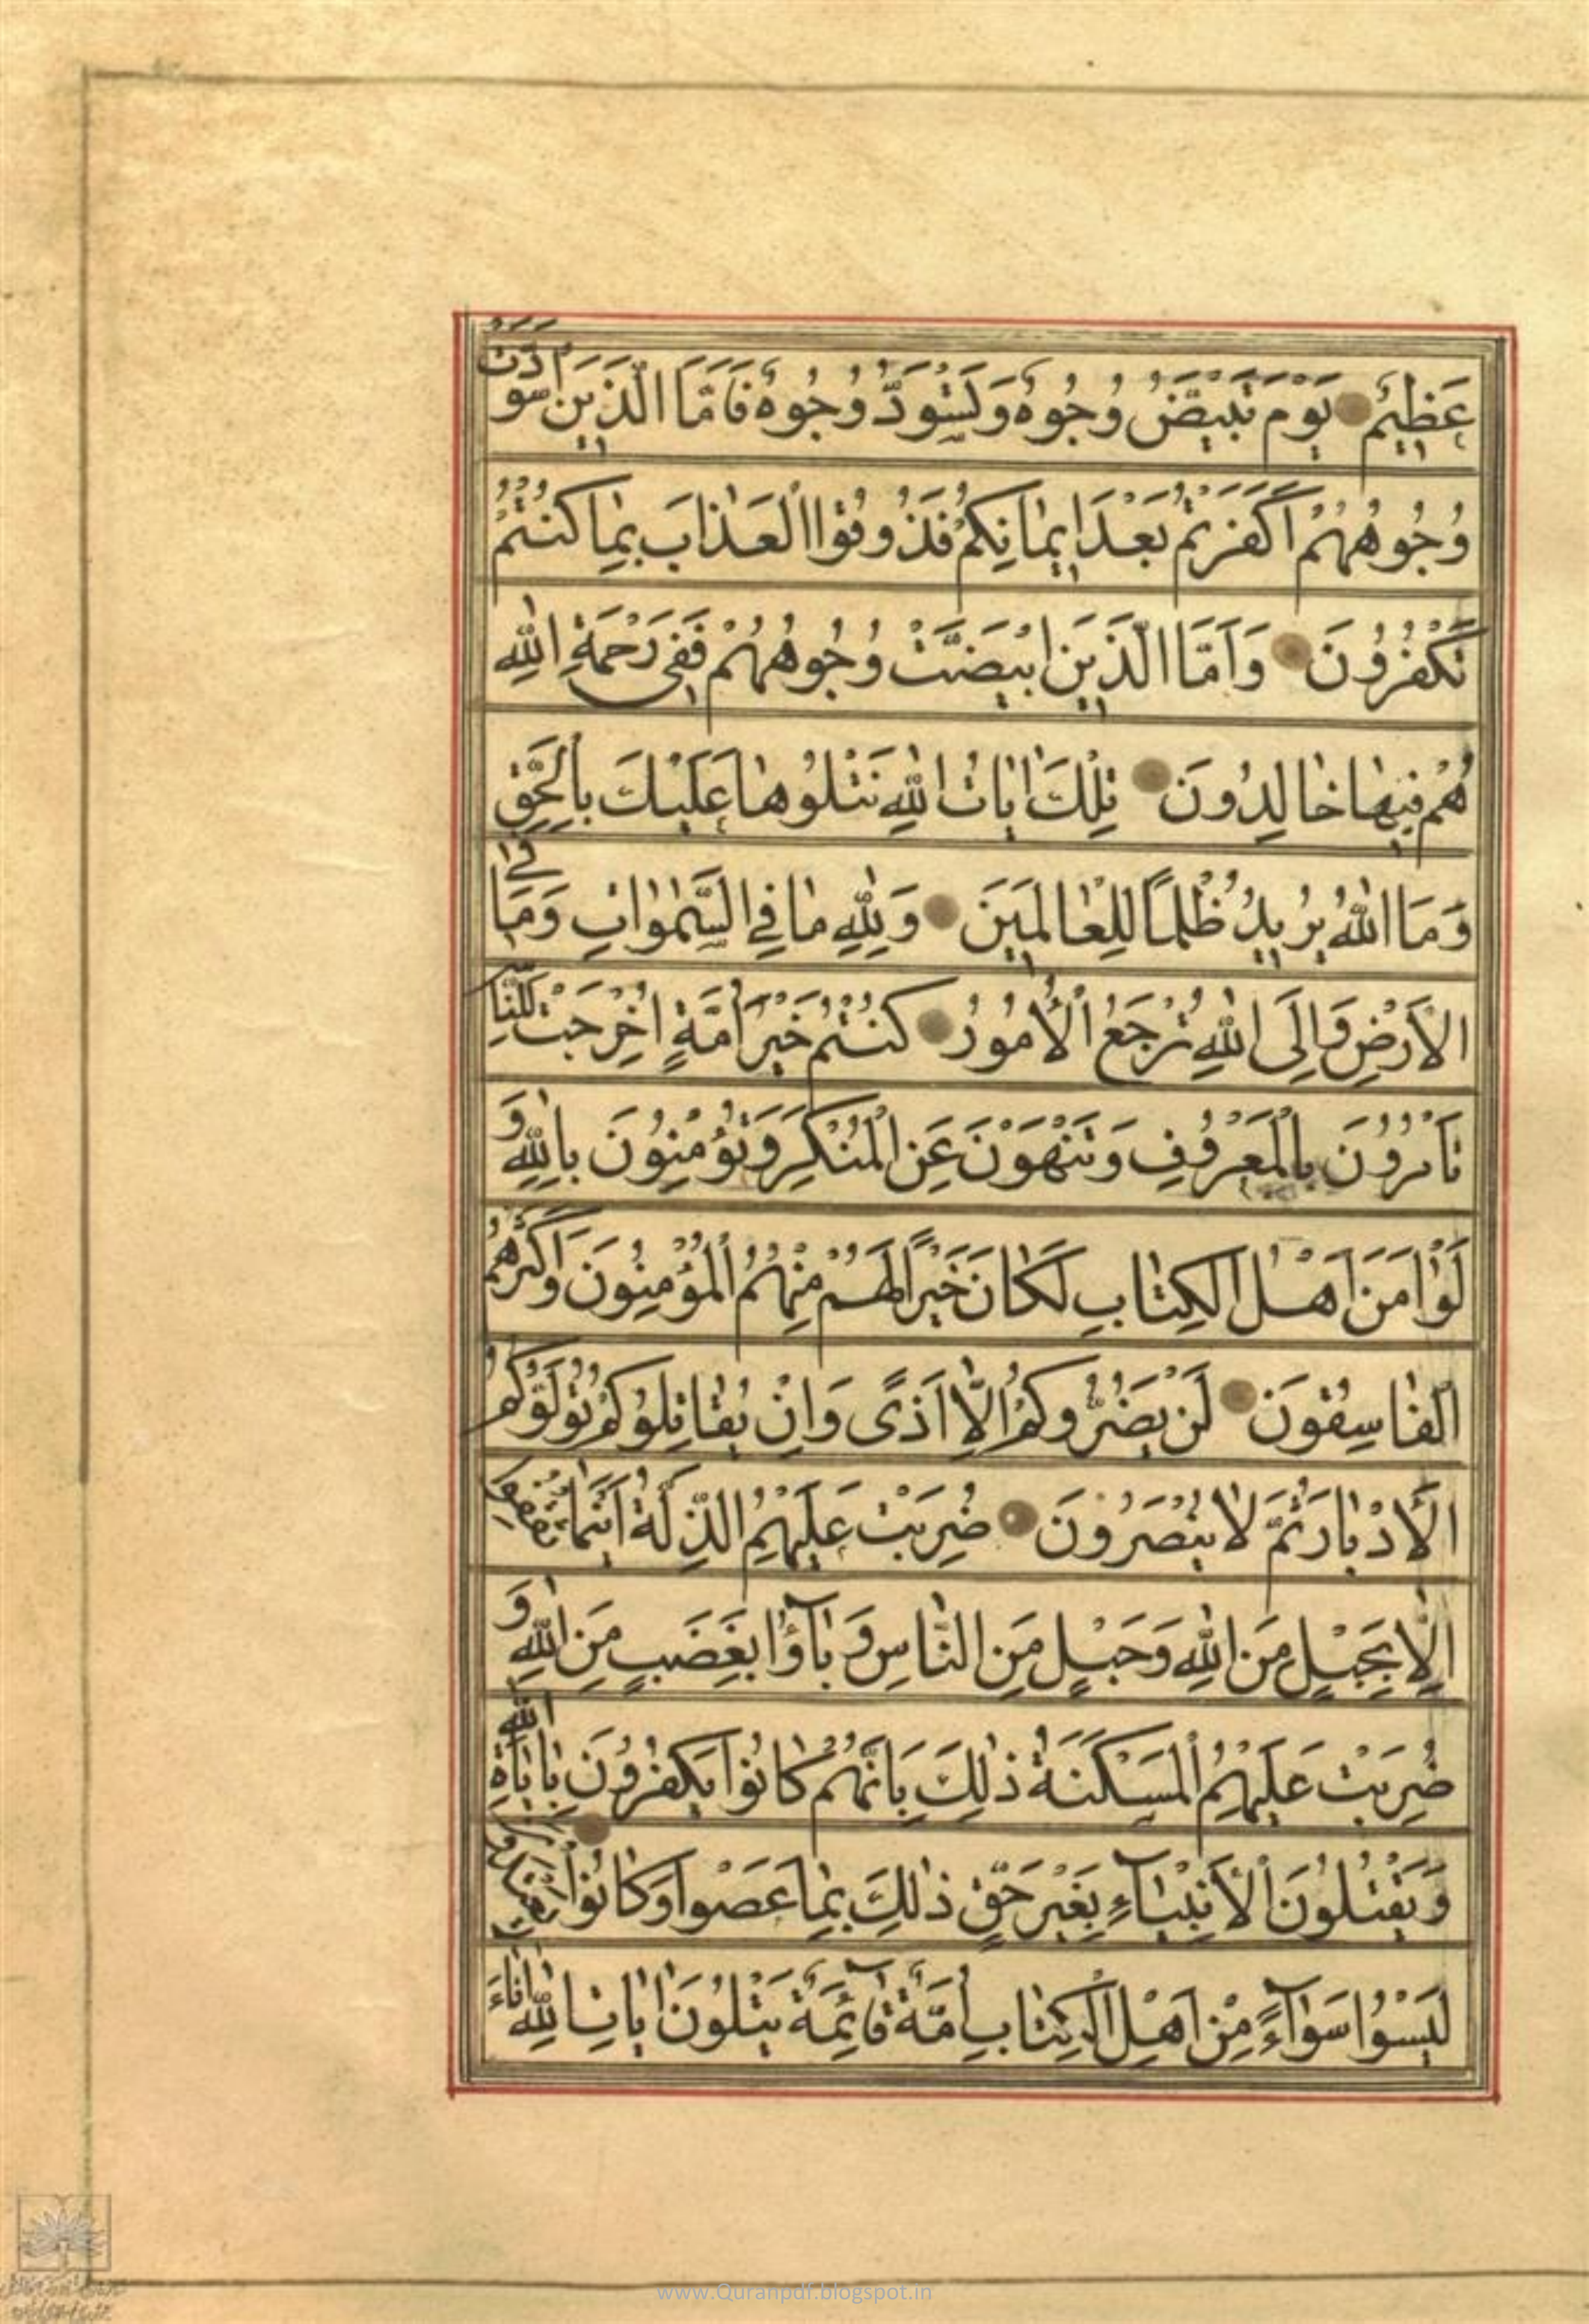 عَظِيمٌ يَوْمَ تَبْيَضُّ وُجُوهٌ وَتَسْوَدُّ وُجُوهٌ فَأَمَّا الَّذِينَ اسْوَدَّتْ
وُجُوهُهُمْ أَكَفَرْتُمْ بَعْدَ إِيمَانِكُمْ فَذُوقُوا الْعَذَابَ بِمَا كُنْتُمْ
تَكْفُرُونَ وَأَمَّا الَّذِينَ ابْيَضَّتْ وُجُوهُهُمْ فَفِي رَحْمَةِ اللَّهِ
هُمْ فِيهَا خَالِدُونَ تِلْكَ اٰيَاتُ اللَّهِ نَتْلُوهَا عَلَيْكَ بِالْحَقِّ
وَمَا اللَّهُ يُرِيدُ ظُلْمًا لِلْعَالَمِينَ وَلِلَّهِ مَا فِي السَّمٰوَاتِ وَمَا فِي
الْأَرْضِ وَإِلَى اللَّهِ تُرْجَعُ الْأُمُورُ كُنْتُمْ خَيْرَ أُمَّةٍ أُخْرِجَتْ لِلنَّاسِ
تَأْمُرُونَ بِالْمَعْرُوفِ وَتَنْهَوْنَ عَنِ الْمُنْكَرِ وَتُؤْمِنُونَ بِاللَّهِ وَ
لَوْ اٰمَنَ أَهْلُ الْكِتَابِ لَكَانَ خَيْرًا لَهُمْ مِنْهُمُ الْمُؤْمِنُونَ وَأَكْثَرُهُمُ
الْفَاسِقُونَ لَنْ يَضُرُّوكُمْ إِلَّا أَذًى وَإِنْ يُقَاتِلُوكُمْ يُوَلُّوكُمُ
الْأَدْبَارَ ثُمَّ لَا يُنْصَرُونَ ضُرِبَتْ عَلَيْهِمُ الذِّلَّةُ أَيْنَمَا ثُقِفُوا
إِلَّا بِحَبْلٍ مِنَ اللَّهِ وَحَبْلٍ مِنَ النَّاسِ وَبَآؤُا بِغَضَبٍ مِنَ اللَّهِ وَ
ضُرِبَتْ عَلَيْهِمُ الْمَسْكَنَةُ ذٰلِكَ بِأَنَّهُمْ كَانُوا يَكْفُرُونَ بِاٰيَاتِ اللَّهِ
وَيَقْتُلُونَ الْأَنْبِيَآءَ بِغَيْرِ حَقٍّ ذٰلِكَ بِمَا عَصَوْا وَكَانُوا يَعْتَدُونَ
لَيْسُوا سَوَآءً مِنْ أَهْلِ الْكِتَابِ أُمَّةٌ قَآئِمَةٌ يَتْلُونَ اٰيَاتِ اللَّهِ اٰنَاءَ
www.Quranpdf.blogspot.in